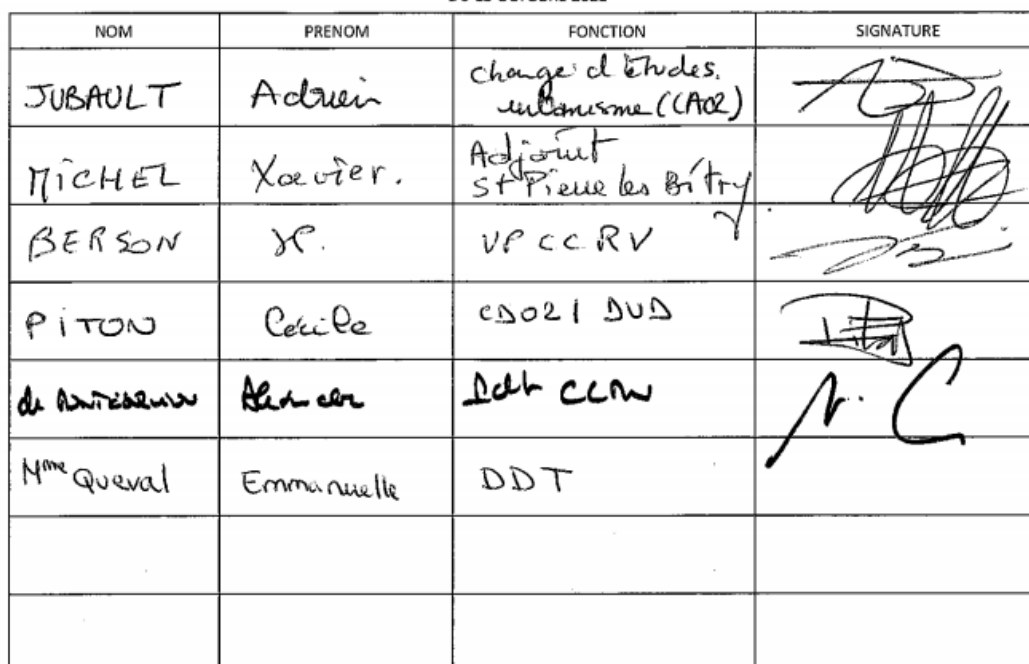 NOM PRENOM FONCTION SIGNATURE
JUBAULT Adrien chargé d'études.
urbanisme (CA02)
MICHEL Xavier. Adjoint
St Pierre les Bitry
BERSON JP. VP CCRV
PITON Cécile CD02 / DVD
de
Mme Queval Emmanuelle DDT